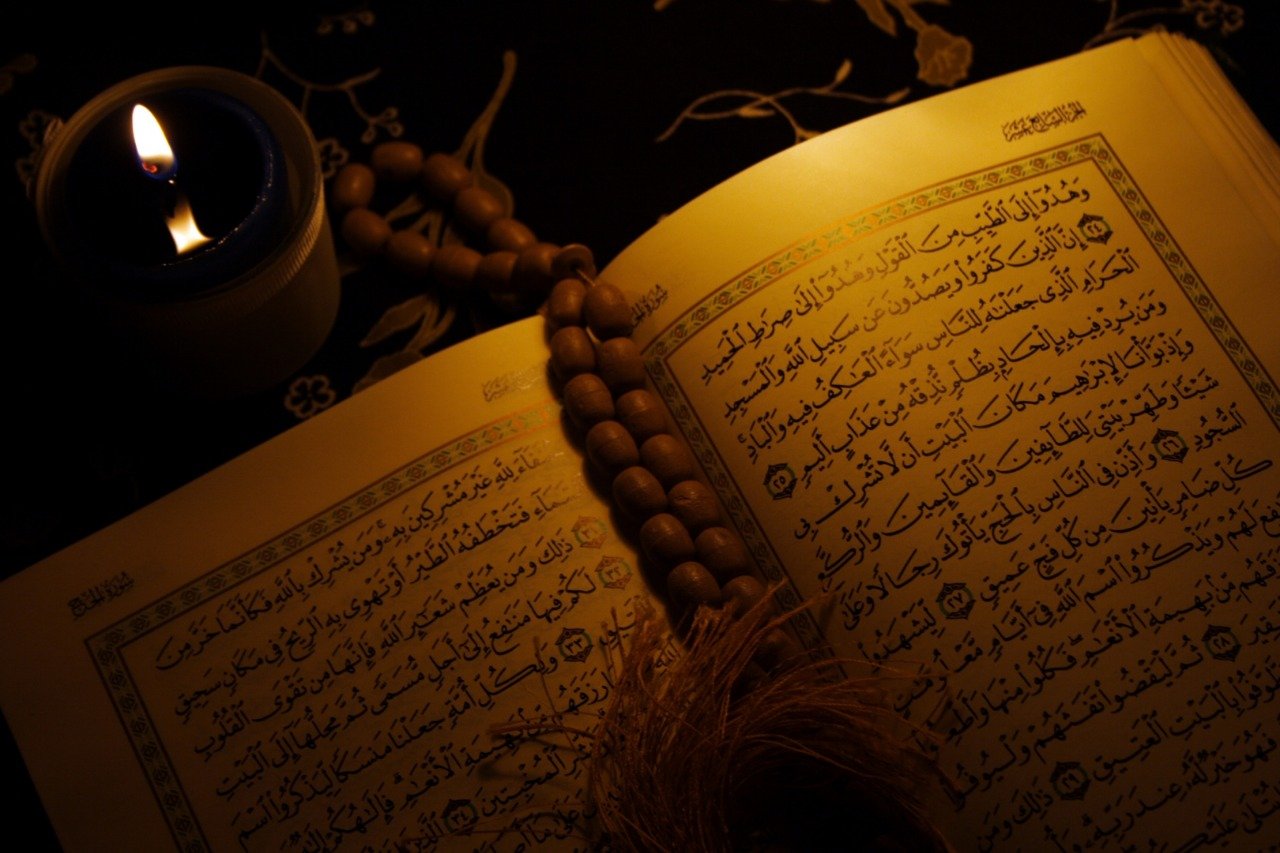 الجزء السابع عشر
وَهُدُوٓا۟ إِلَى ٱلطَّيِّبِ مِنَ ٱلْقَوْلِ وَهُدُوٓا۟ إِلَىٰ صِرَٰطِ ٱلْحَمِيدِ
٢٤ إِنَّ ٱلَّذِينَ كَفَرُوا۟ وَيَصُدُّونَ عَن سَبِيلِ ٱللَّهِ وَٱلْمَسْجِدِ
ٱلْحَرَامِ ٱلَّذِى جَعَلْنَٰهُ لِلنَّاسِ سَوَآءً ٱلْعَٰكِفُ فِيهِ وَٱلْبَادِ
وَمَن يُرِدْ فِيهِ بِإِلْحَادٍۭ بِظُلْمٍ نُّذِقْهُ مِنْ عَذَابٍ أَلِيمٍ ٢٥
وَإِذْ بَوَّأْنَا لِإِبْرَٰهِيمَ مَكَانَ ٱلْبَيْتِ أَن لَّا تُشْرِكْ بِى
شَيْـًٔا وَطَهِّرْ بَيْتِىَ لِلطَّآئِفِينَ وَٱلْقَآئِمِينَ وَٱلرُّكَّعِ
ٱلسُّجُودِ ٢٦ وَأَذِّن فِى ٱلنَّاسِ بِٱلْحَجِّ يَأْتُوكَ رِجَالًا وَعَلَىٰ
كُلِّ ضَامِرٍ يَأْتِينَ مِن كُلِّ فَجٍّ عَمِيقٍ ٢٧ لِّيَشْهَدُوا۟
لَهُمْ وَيَذْكُرُوا۟ ٱسْمَ ٱللَّهِ فِىٓ أَيَّامٍ
مِّنۢ بَهِيمَةِ ٱلْأَنْعَٰمِ فَكُلُوا۟ مِنْهَا
٢٨ ثُمَّ لْيَقْضُوا۟ تَفَثَهُمْ وَلْيُوفُوا۟
بِٱلْبَيْتِ ٱلْعَتِيقِ ٢٩ ذَٰلِكَ وَمَن
فَهُوَ خَيْرٌ لَّهُۥ عِندَ رَبِّهِۦ
سورة الحج
لِلَّهِ غَيْرَ مُشْرِكِينَ بِهِۦ وَمَن يُشْرِكْ بِٱللَّهِ فَكَأَنَّمَا خَرَّ مِنَ
فَتَخْطَفُهُ ٱلطَّيْرُ أَوْ تَهْوِى بِهِ ٱلرِّيحُ فِى مَكَانٍ سَحِيقٍ
٣١ ذَٰلِكَ وَمَن يُعَظِّمْ شَعَٰٓئِرَ ٱللَّهِ فَإِنَّهَا مِن تَقْوَى ٱلْقُلُوبِ
٣٢ لَكُمْ فِيهَا مَنَٰفِعُ إِلَىٰٓ أَجَلٍ مُّسَمًّى ثُمَّ مَحِلُّهَآ إِلَى ٱلْبَيْتِ
٣٣ وَلِكُلِّ أُمَّةٍ جَعَلْنَا مَنسَكًا لِّيَذْكُرُوا۟ ٱسْمَ
رَزَقَهُم بَهِيمَةِ ٱلْأَنْعَٰمِ فَإِلَٰهُكُمْ
ٱلْمُخْبِتِينَ ٣٤